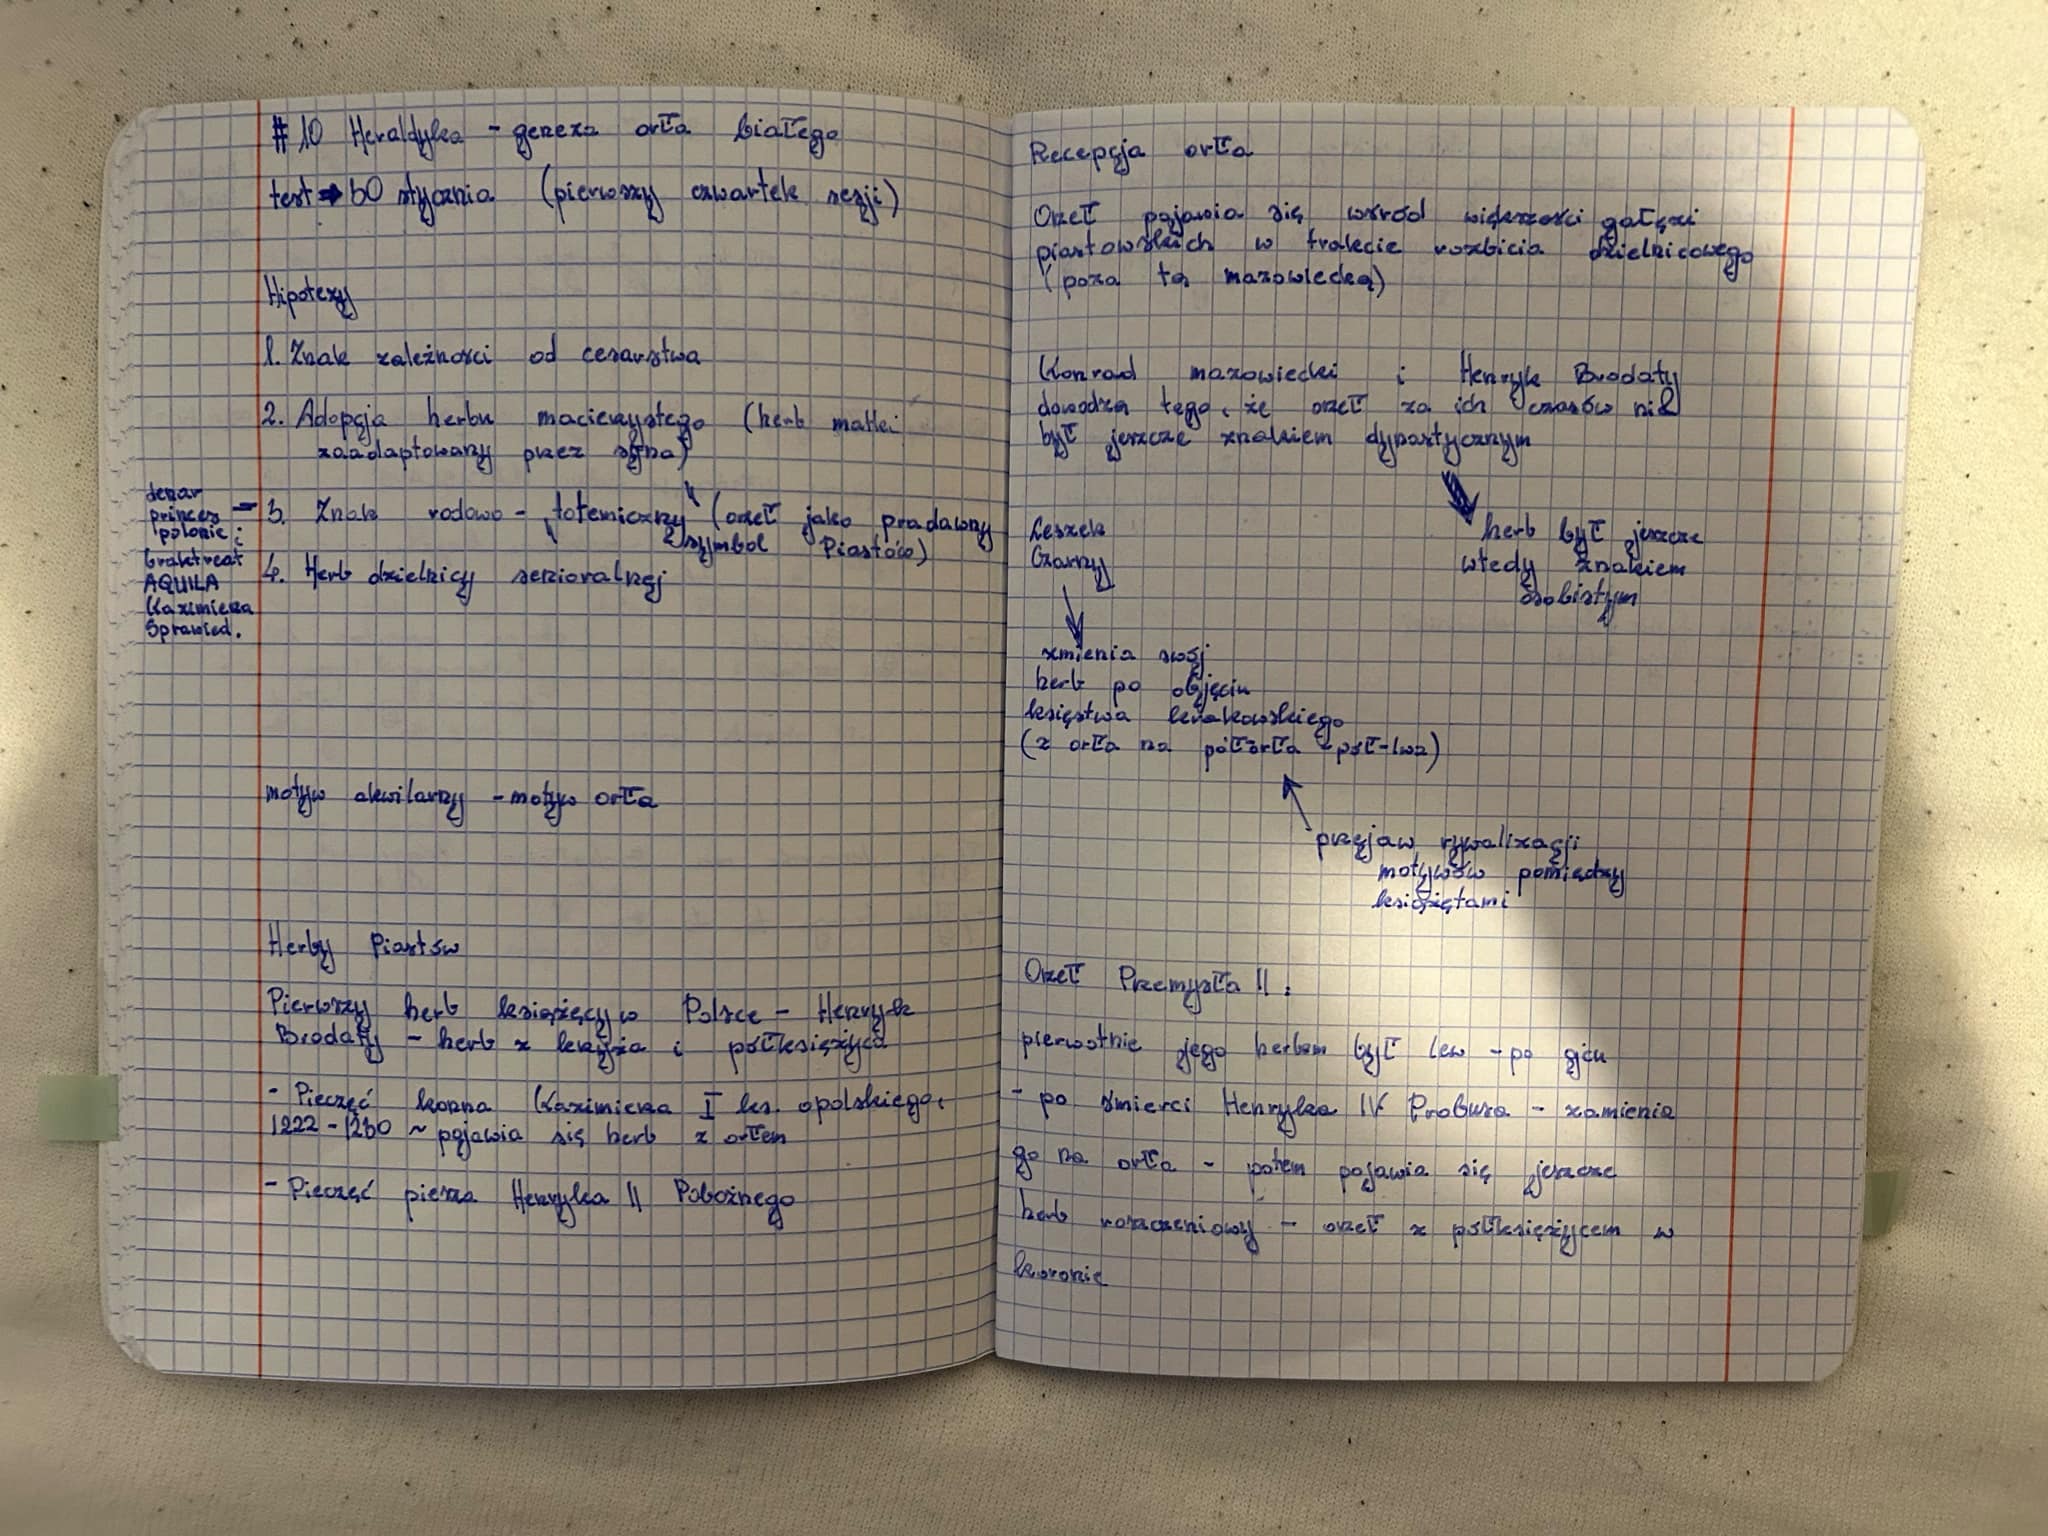 #10 Heraldyka - geneza orła białego
test → 30 stycznia (pierwszy czwartek sesji)
Hipotezy
1. Znak zależności od cesarstwa
2. Adopcja herbu macierzystego (herb matki
zaadaptowany przez syna)
3. Znak rodowo - totemiczny (orzeł jako pradawny
symbol Piastów)
4. Herb dzielnicy senioralnej
denar
princes
polonie i
brakteat
AQUILA
Kazimierza
Sprawied.
motyw akwilarny - motyw orła
Herby Piastów
Pierwszy herb książęcy w Polsce - Henryk
Brodaty - herb z krzyża i półksiężyca
- Pieczęć konna Kazimierza I ks. opolskiego,
1222 - 1230 ~ pojawia się herb z orłem
- Pieczęć piesza Henryka II Pobożnego
Recepcja orła
Orzeł pojawia się wśród większości gałęzi
piastowskich w trakcie rozbicia dzielnicowego
(poza tą mazowiecką)
Konrad mazowiecki i Henryk Brodaty
dowodzą tego, że orzeł za ich czasów nie
był jeszcze znakiem dynastycznym
herb był jeszcze
wtedy znakiem
osobistym
Leszek
Czarny
zmienia swój
herb po objęciu
księstwa krakowskiego
(z orła na półorła - pół-lwa)
przejaw rywalizacji
motywów pomiędzy
książętami
Orzeł Przemysła II:
pierwotnie jego herbem był lew - po ojcu
- po śmierci Henryka IV Probusa - zamienia
go na orła - potem pojawia się jeszcze
herb roszczeniowy - orzeł z półksiężycem w
koronie